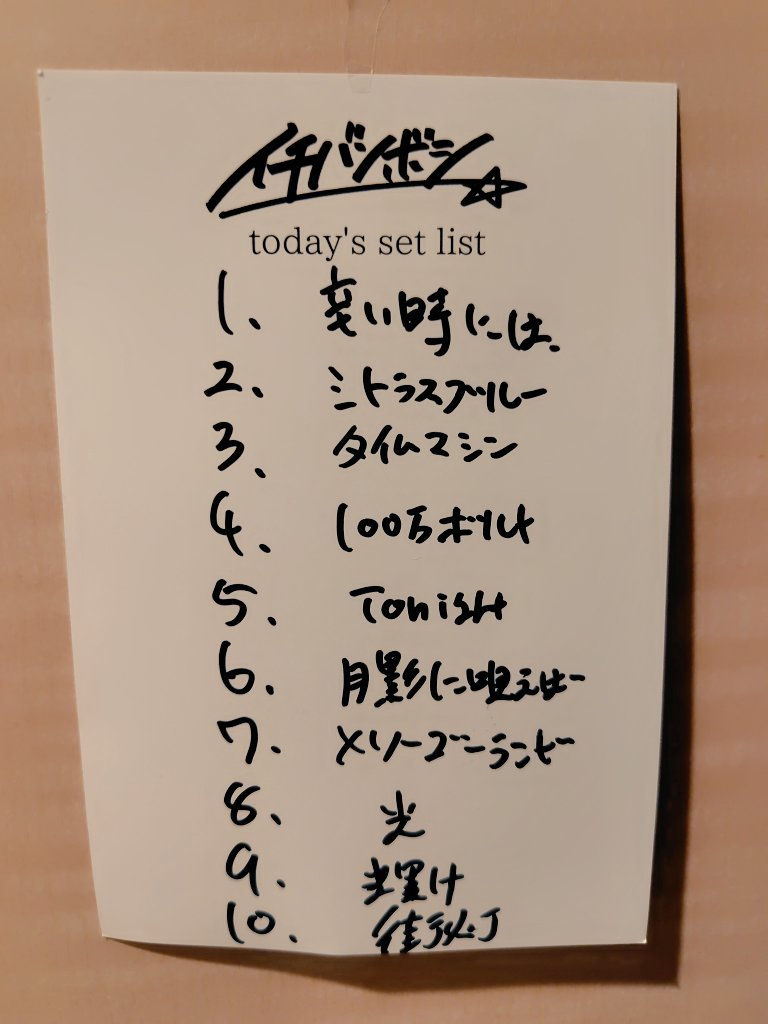 イチバンボシ☆
today's set list
1、 辛い時には、
2、 シトラスブルー
3、 タイムマシン
4、 100万ボルト
5、 Tonight
6、 月影に唄えば
7、 メリーゴーランド
8、 光
9、 輝け
10、